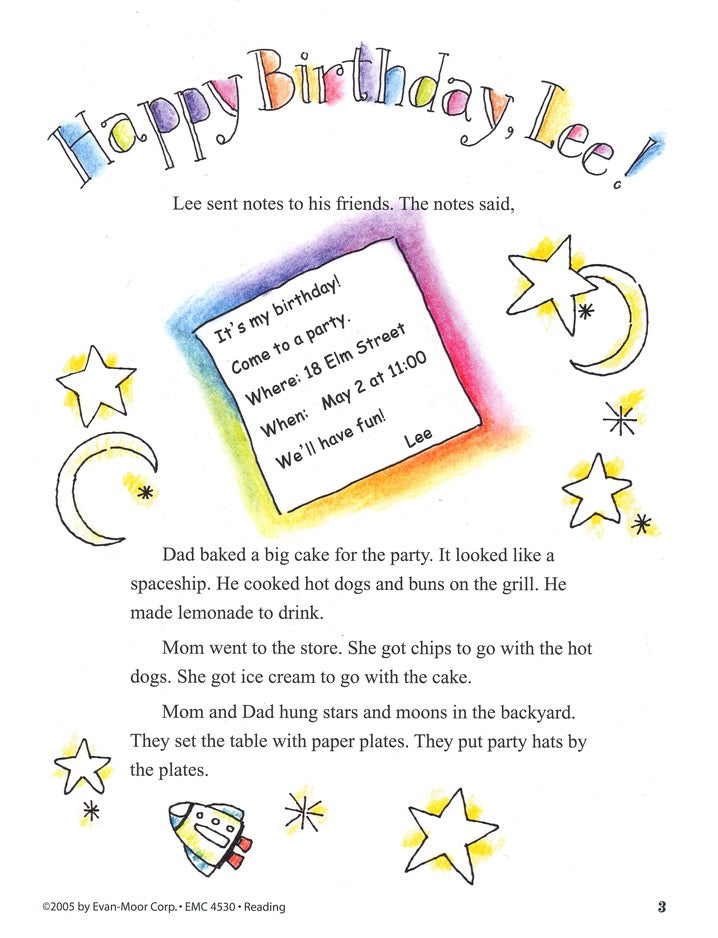 Happy Birthday, Lee!
Lee sent notes to his friends. The notes said,
It's my birthday!
Come to a party.
Where: 18 Elm Street
When: May 2 at 11:00
We'll have fun!
Lee
Dad baked a big cake for the party. It looked like a
spaceship. He cooked hot dogs and buns on the grill. He
made lemonade to drink.
Mom went to the store. She got chips to go with the hot
dogs. She got ice cream to go with the cake.
Mom and Dad hung stars and moons in the backyard.
They set the table with paper plates. They put party hats by
the plates.
©2005 by Evan-Moor Corp. • EMC 4530 • Reading
3